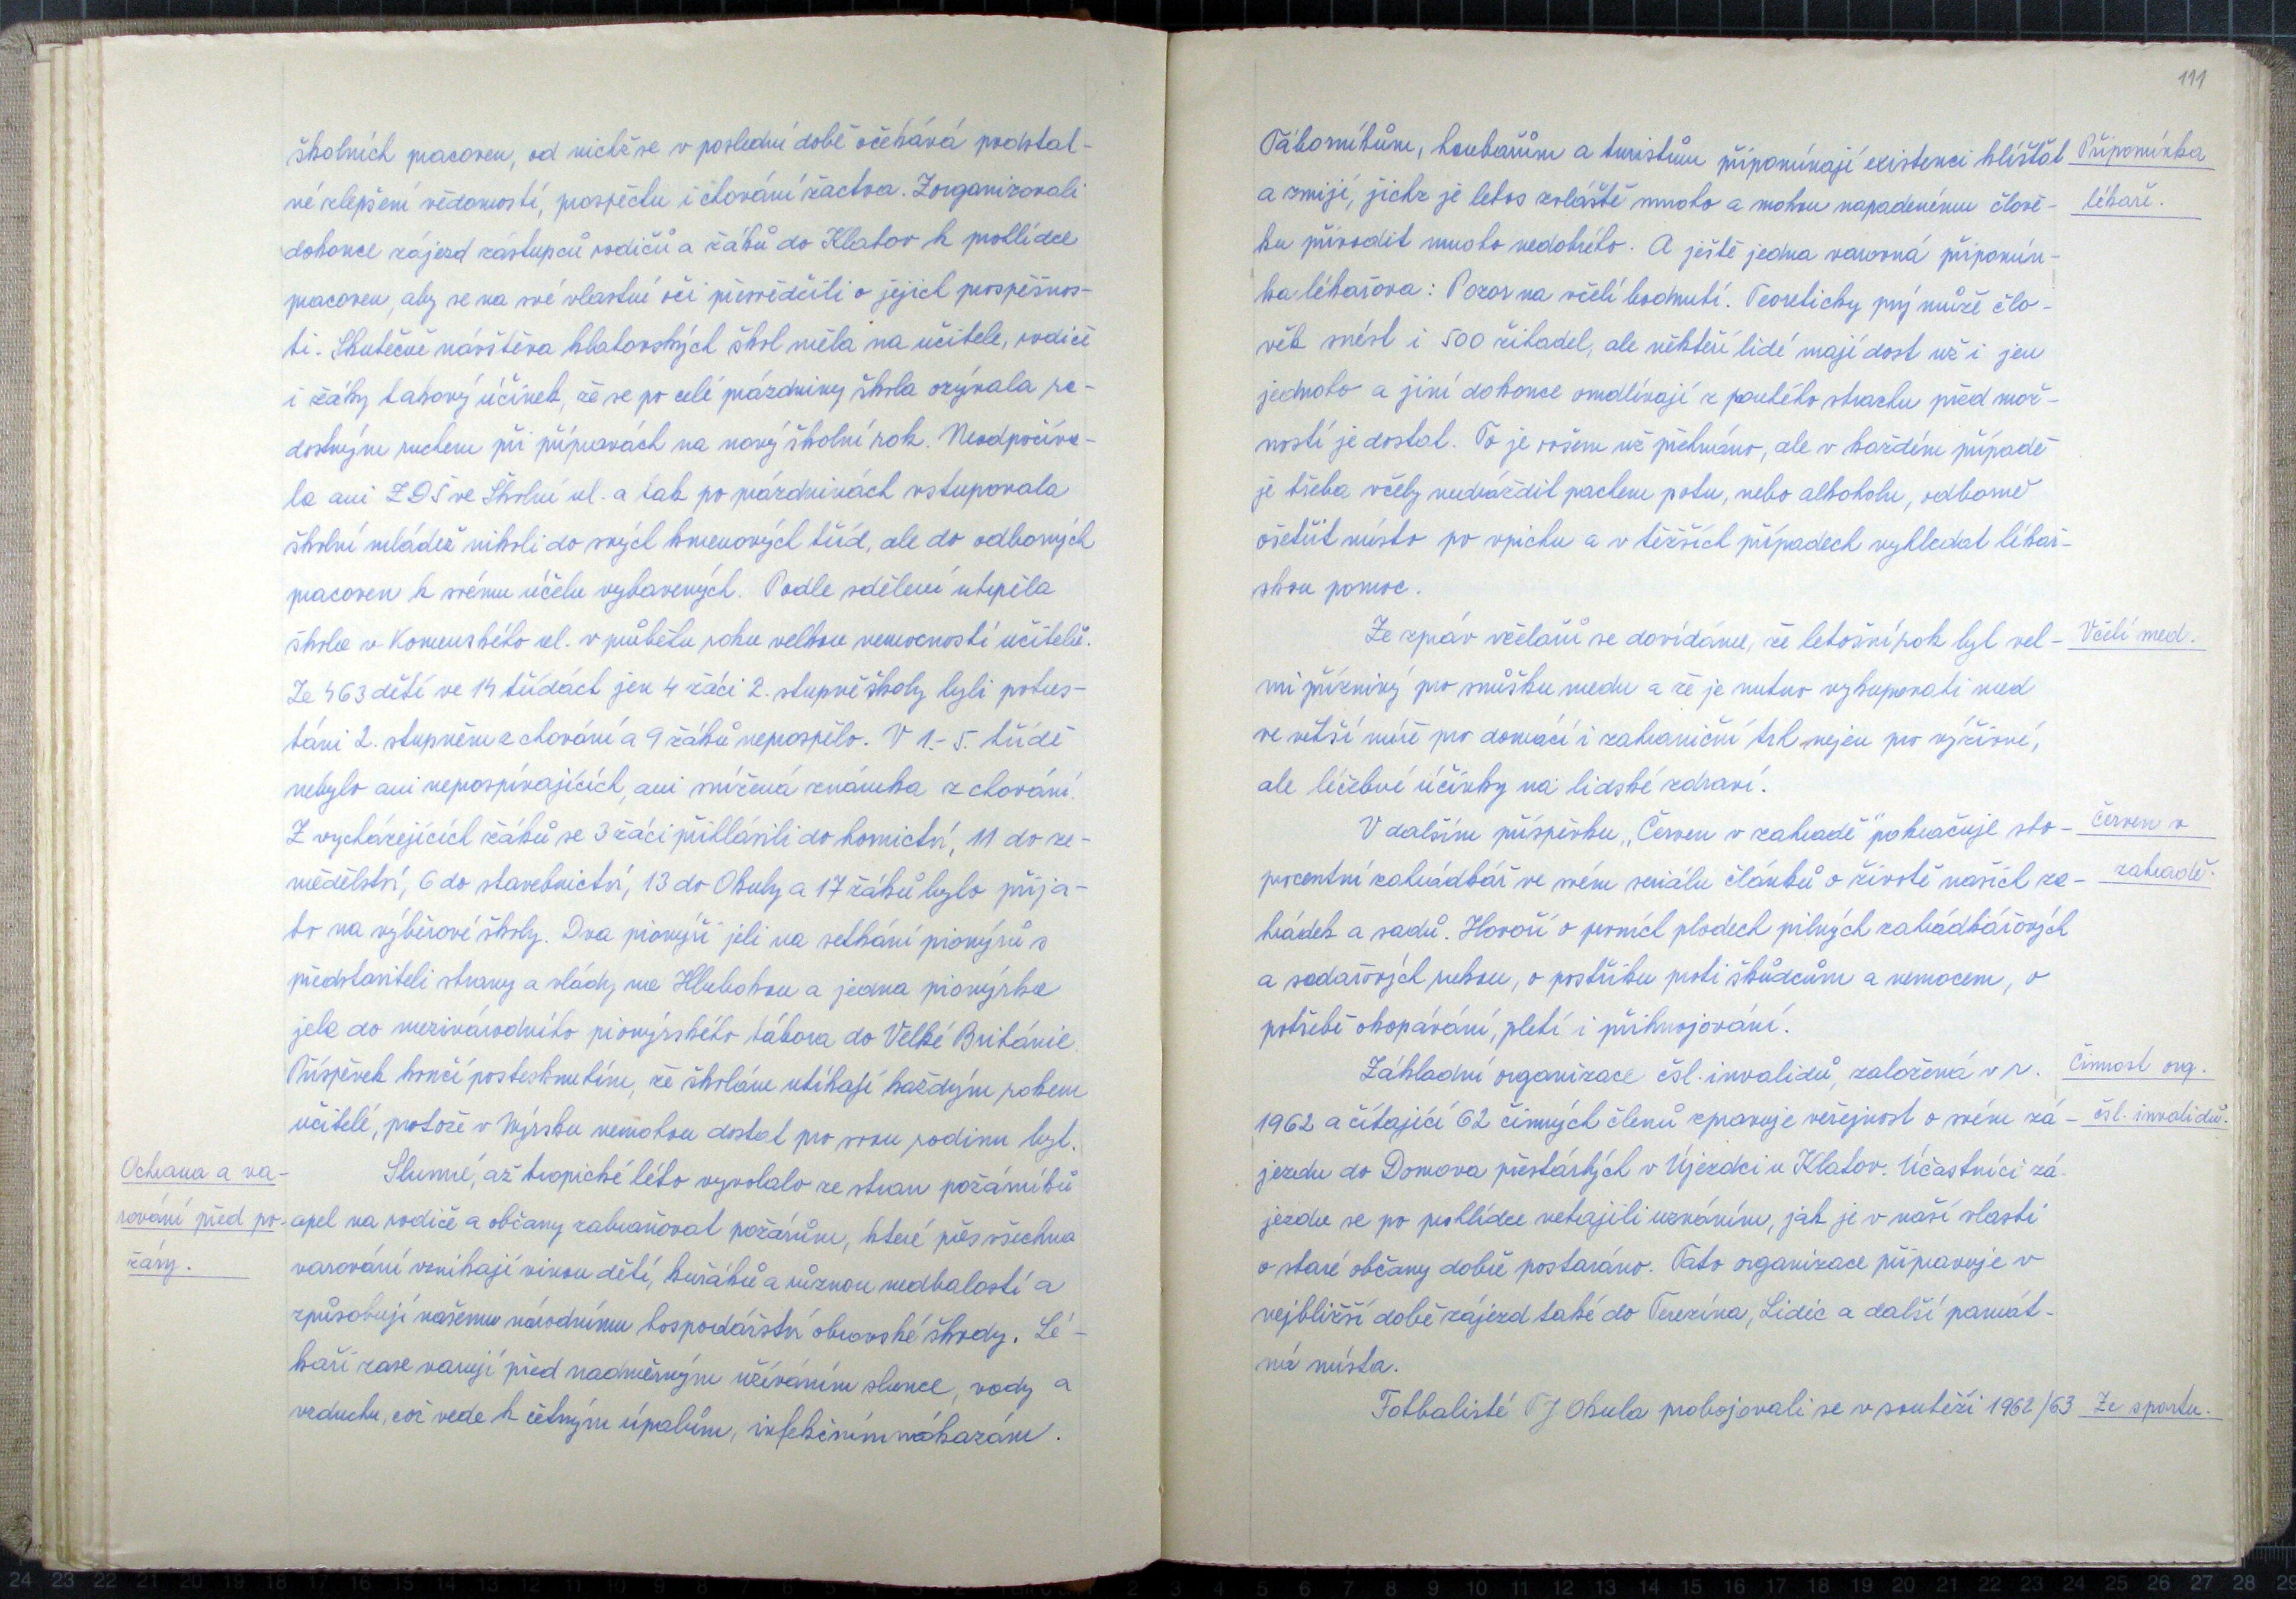 školních pracoven, od nichž se v poslední době očekává podstat-
né zlepšení vědomostí, prospěchu i chování žactva. Zorganizovali
dokonce zájezd zástupců rodičů a žáků do Klatov k prohlídce
pracoven, aby se na své vlastní oči přesvědčili o jejich prospěšnos-
ti. Skutečně návštěva klatovských škol měla na učitele, rodiče
i žáky takový účinek, že se po celé prázdniny škola ozývala ra-
dostným ruchem při přípravách na nový školní rok. Neodpočíva-
la ani ZDŠ ve Školní ul. a tak po prázdninách vstupovala
školní mládež nikoli do svých kmenových tříd, ale do odborných
pracoven k svému účelu vybavených. Podle sdělení utrpěla
škola v Komenského ul. v průběhu roku velkou nemocností učitelů.
Ze 463 dětí ve 14 třídách jen 4 žáci 2. stupně školy byli potres-
táni 2. stupněm z chování a 9 žáků neprospělo. V 1.- 5. třídě
nebylo ani neprospívajících, ani snížená známka z chování.
Z vycházejících žáků se 3 žáci přihlásili do hornictví, 11 do ze-
mědělství, 6 do stavebnictví, 13 do Okuly a 17 žáků bylo přija-
to na výběrové školy. Dva pionýři jeli na setkání pionýrů s
představiteli strany a vlády na Hlubokou a jedna pionýrka
jela do mezinárodního pionýrského tábora do Velké Británie.
Příspěvek končí postesknutím, že školám utíkají každým rokem
učitelé, protože v Nýrsku nemohou dostat pro svou rodinu byt.
Ochrana a va-
rování před po-
žáry.
Slunné, až tropické léto vyvolalo ze stran požárníků
apel na rodiče a občany zabraňovat požárům, které přes všechna
varování vznikají vinou dětí, kuřáků a různou nedbalostí a
způsobují našemu národnímu hospodářství obrovské škody. Lé-
kaři zase varují před nadměrným užíváním slunce, vody a
vzduchu, což vede k četným úpalům, infekčním nákazám.
111
Táborníkům, houbařům a turistům připomínají existenci klíšťat
a zmijí, jichž je letos zvláště mnoho a mohou napadenému člově-
ku přivodit mnoho nedobrého. A ještě jedna varovná připomín-
ka lékařova: Pozor na včelí bodnutí. Teoreticky prý může člo-
věk snést i 500 žihadel, ale někteří lidé mají dost už i jen
jednoho a jiní dokonce omdlívají z pouhého strachu před mož-
ností je dostat. To je ovšem už přehnáno, ale v každém případě
je třeba včely nedráždit pachem potu, nebo alkoholu, odborně
ošetřit místo po vpichu a v těžších případech vyhledat lékař-
skou pomoc.
Připomínka
lékaře.
Ze zpráv včelařů se dovídáme, že letošní rok byl vel-
mi příznivý pro snůšku medu a že je nutno vykupovati med
ve větší míře pro domácí i zahraniční trh nejen pro výživné,
ale léčebné účinky na lidské zdraví.
Včelí med.
V dalším příspěvku "Červen v zahradě" pokračuje sto-
procentní zahrádkář ve svém seriálu článků o životě našich za-
hrádek a sadů. Hovoří o prvních plodech pilných zahrádkářových
a sadařových rukou, o postřiku proti škůdcům a nemocem, o
potřebě okopávání, pletí i přihnojování.
Červen v
zahradě.
Základní organizace čsl. invalidů, založená v r.
1962 a čítající 62 činných členů zpravuje veřejnost o svém zá-
jezdu do Domova přestárlých v Újezdci u Klatov. Účastníci zá-
jezdu se po prohlídce netajili uznáním, jak je v naší vlasti
o staré občany dobře postaráno. Tato organizace připravuje v
nejbližší době zájezd také do Terezína, Lidic a další památ-
ná místa.
Činnost org.
čsl. invalidů.
Fotbalisté TJ Okula probojovali se v soutěži 1962/63
Ze sportu.
24 23 22 21 20 19 18 17 16 15 14 13 12 11 10 9 8 7 6 5 4 3 2 1
2 3 4 5 6 7 8 9 10 11 12 13 14 15 16 17 18 19 20 21 22 23 24 25 26 27 28 29